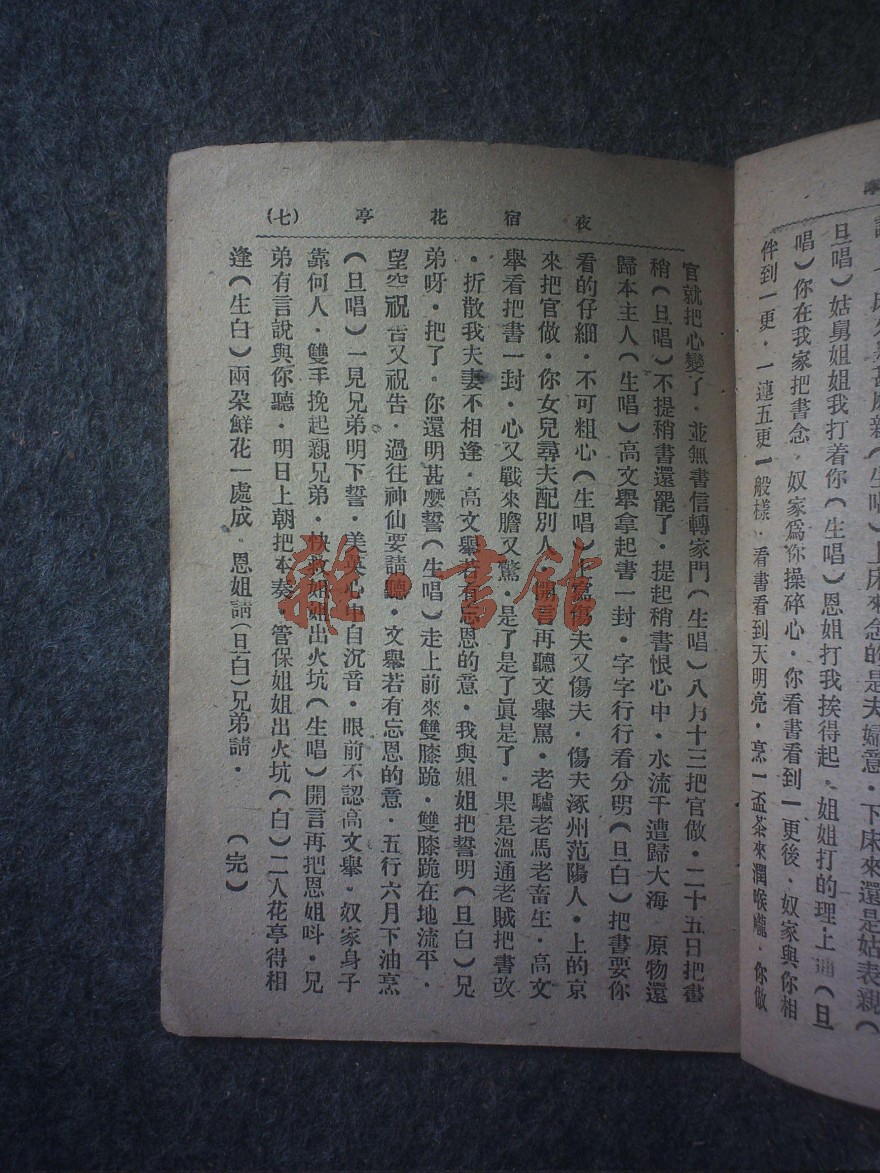 伴到一更．一連五更一般樣．看書看到天明亮．烹一盃茶來潤喉嚨．你做
唱）你在我家把書念．奴家為你操碎心．你看書看到一更後．奴家與你相
旦唱）姑舅姐姐我打着你（生唱）恩姐打我挨得起．姐姐打的理上通（旦
上床來念的是夫婦意．下床來還是姑表親（
夜宿花亭（七）
官就把心變了．並無書信轉家門（生唱）八月十三把官做．二十五日把書
稍（旦唱）不提稍書還罷了．提起稍書恨心中．水流千遭歸大海　原物還
歸本主人（生唱）高文舉拿起書一封．字字行行看分明（旦白）把書要你
看的仔細．不可粗心（生唱）上寫傷夫又傷夫．傷夫涿州范陽人．上的京
來把官做．你女兒尋夫配別人．開言再聽文舉罵．老驢老馬老畜生．高文
舉看把書一封．心又戰來膽又驚．是了是了眞是了．果是溫通老賊把書改
．折散我夫妻不相逢．高文舉若有忘恩的意．我與姐姐把誓明（旦白）兄
弟呀．把了．你還明甚麽誓（生唱）走上前來雙膝跪．雙膝跪在地流平．
望空祝告又祝告．過往神仙要請聽．文舉若有忘恩的意．五行六月下油烹
（旦唱）一見兄弟明下誓．美英心中自沉音．眼前不認高文舉．奴家身子
靠何人．雙手挽起親兄弟．快救姐姐出火坑（生唱）開言再把恩姐呌．兄
弟有言說與你聽．明日上朝把本奏．管保姐姐出火坑（白）二人花亭得相
逢（生白）兩朶鮮花一處成．恩姐請（旦白）兄弟請．（完）
雜·書館